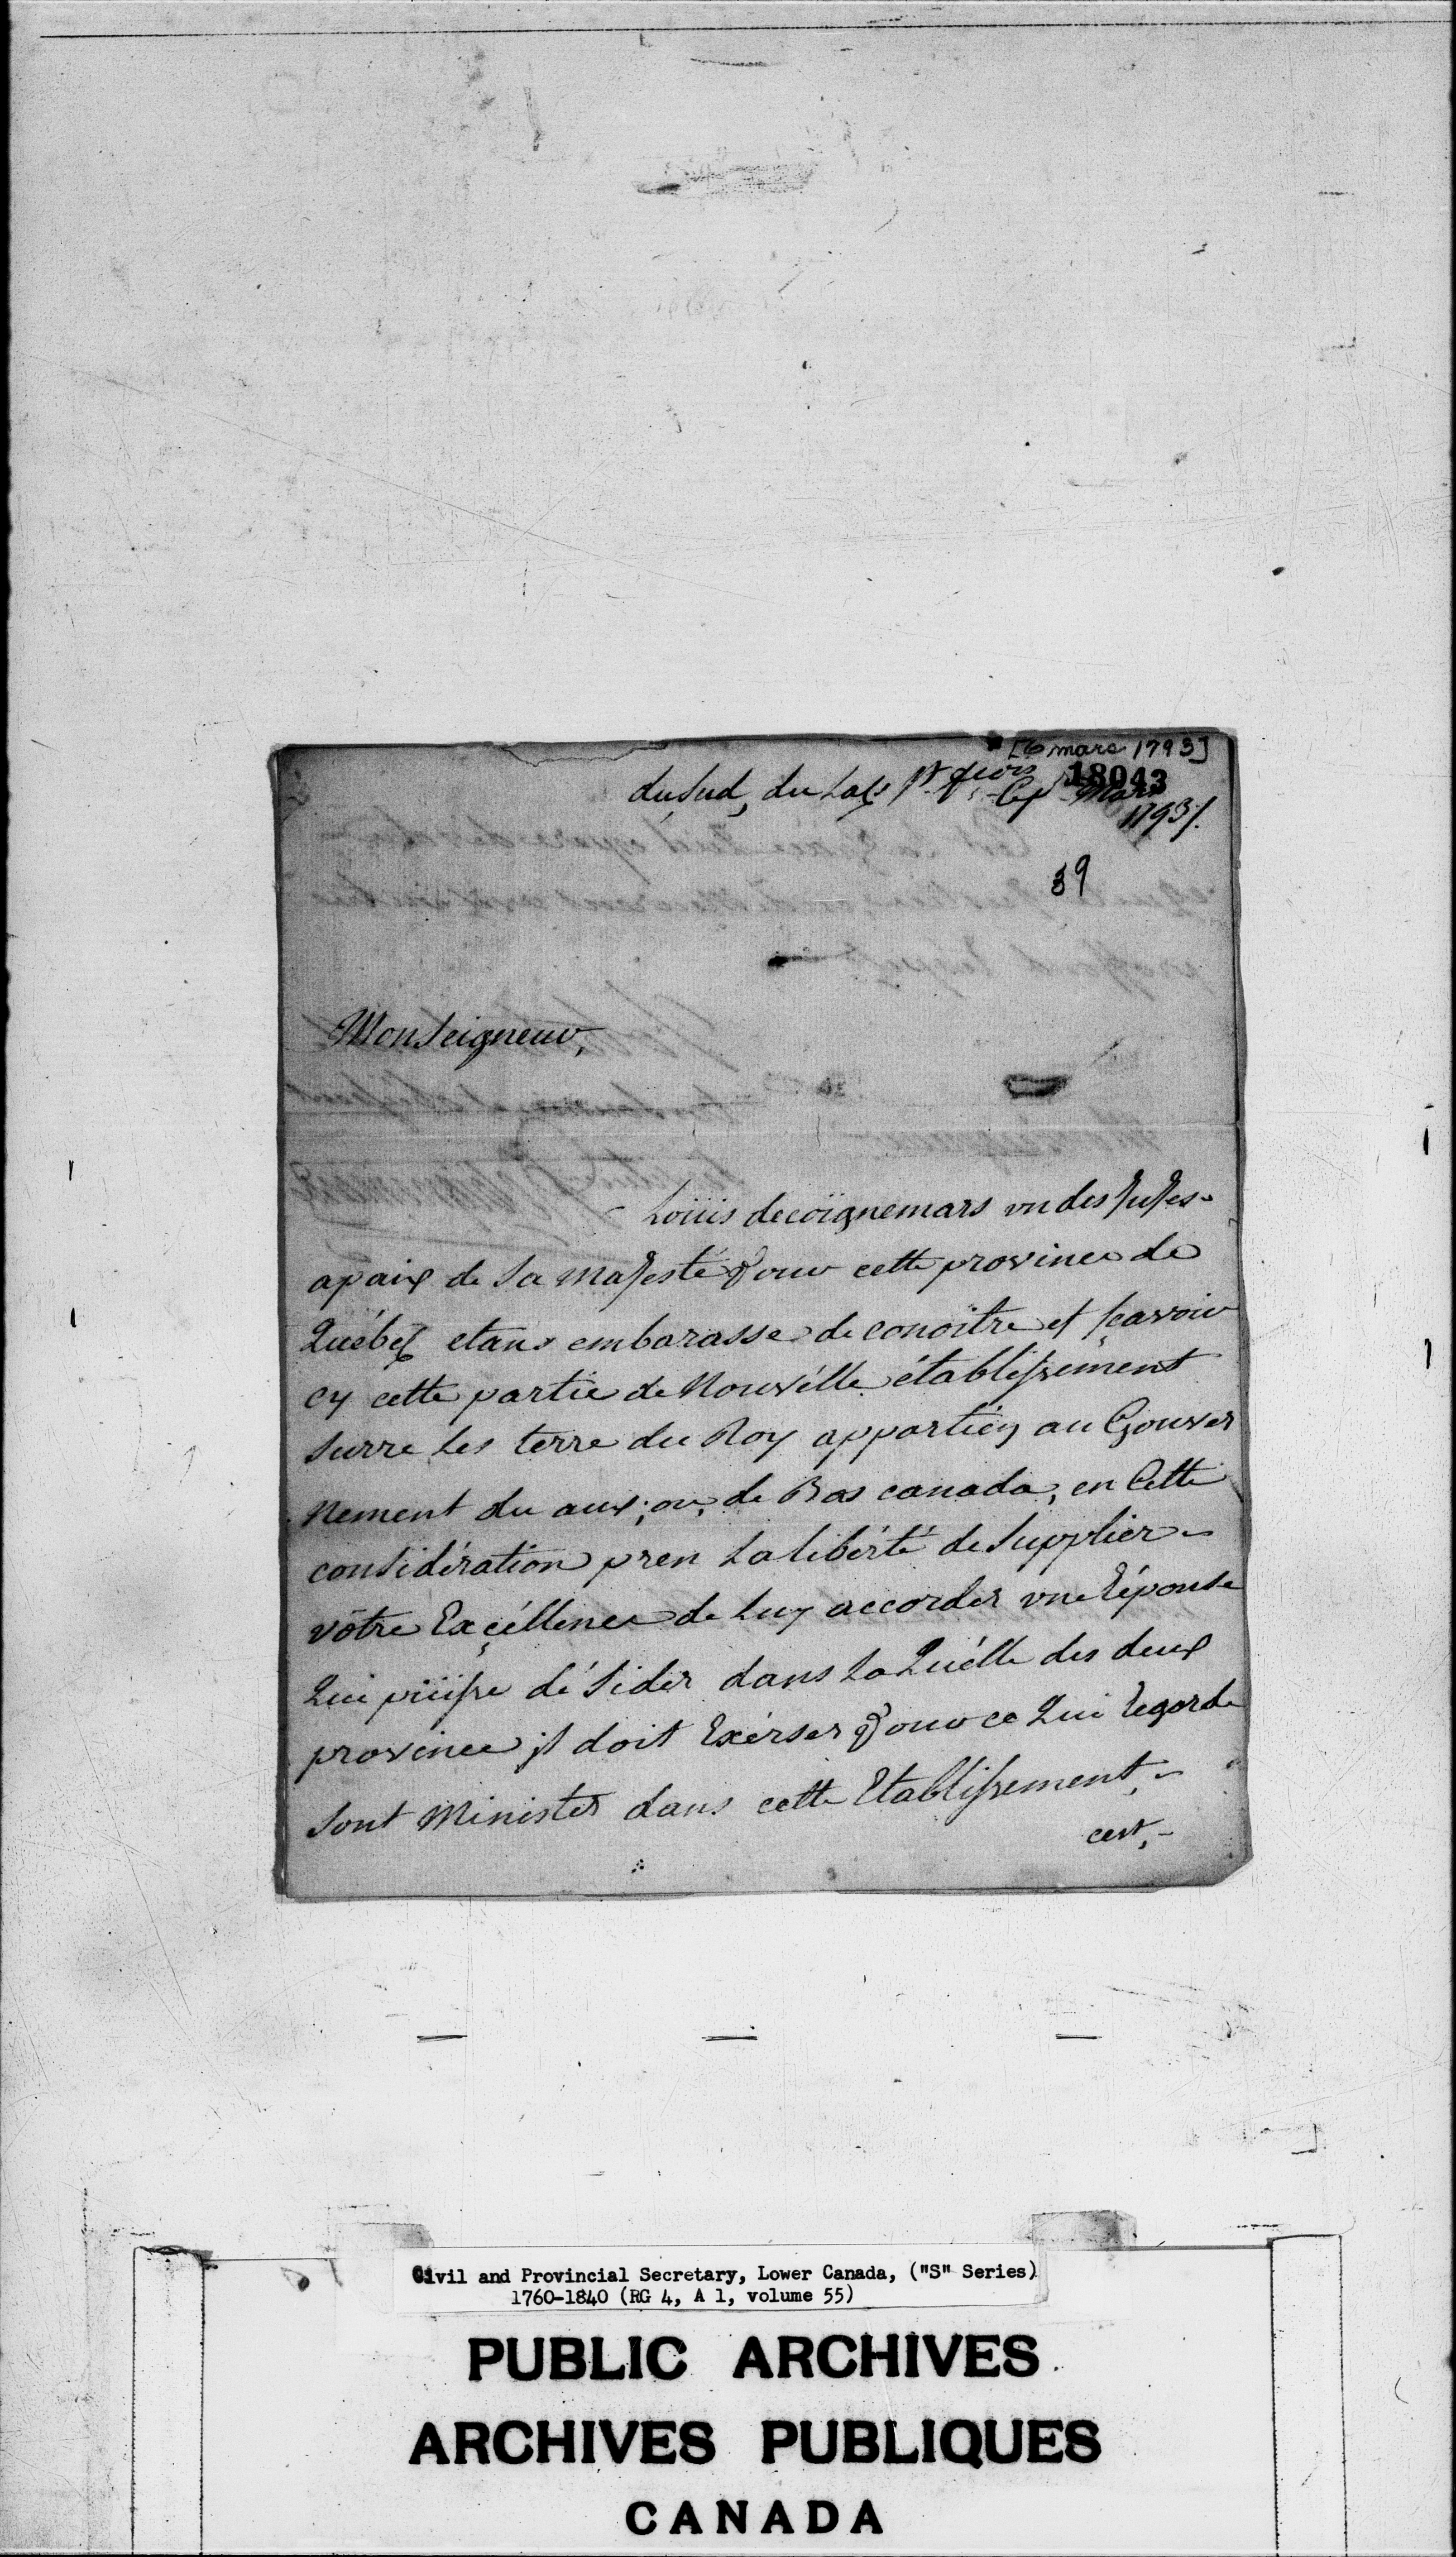 [6 mars 1793]
18043
du Sud, du Lac St. frois Le 6 Mars
1793/.
39
Monseigneur,
Loüis decoïgnemars un des Juges
apaix de Sa Majesté pour cette province de
Québec etans embarasse de conoître et sçavoir
cy cette partie de Nouvélle établissement
surre Les terre du Roy appartien au Gouver
nement du aux; ou, de Bas canada, en Cette
considération pren La libérté de Supplier
vôtre Exçéllence de Luy accorder une Réponse
Qui püisse dé Sider dans La Quélle des deux
province il doit Exérser pour ce Qui Regarde
sont Minister dans cette Etablissement,
cest,-
Civil and Provincial Secretary, Lower Canada, ("S" Series)
1760-1840 (RG 4, A 1, volume 55)
PUBLIC ARCHIVES
ARCHIVES PUBLIQUES
CANADA